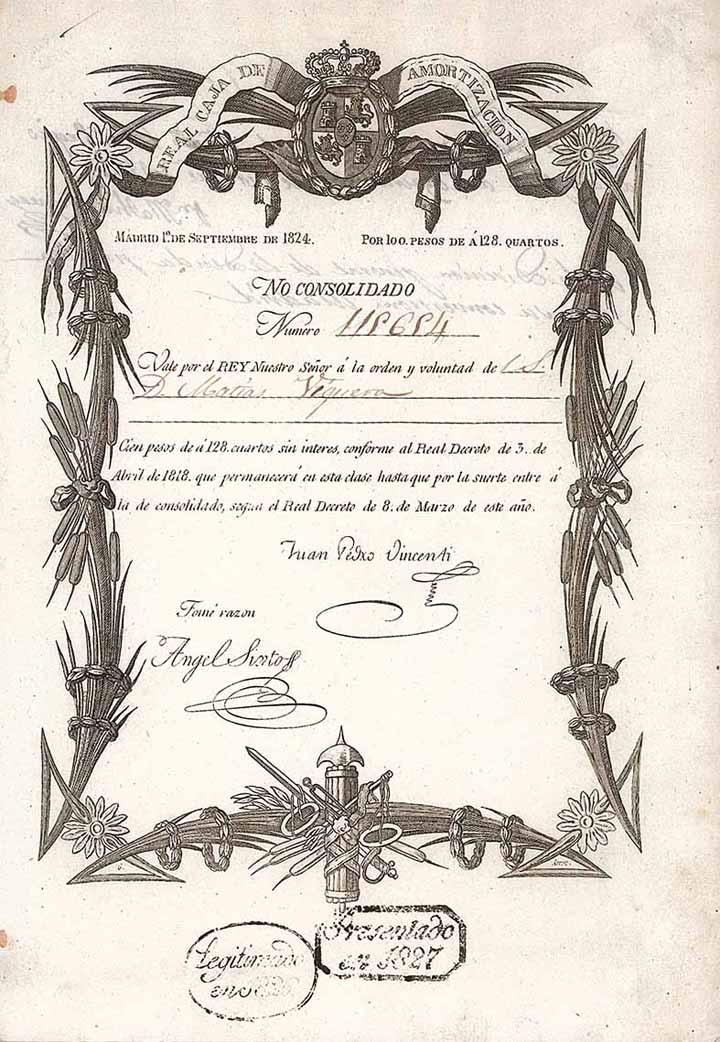 REAL CAJA DE AMORTIZACION
MADRID 1º. DE SEPTIEMBRE DE 1824. POR 100. PESOS DE Á 128. QUARTOS.
NO CONSOLIDADO
Numero 118684
Vale por el REY Nuestro Señor á la orden y voluntad de
D. Matias Viguera
Cien pesos de á 128. cuartos sin interes, conforme al Real Decreto de 3. de
Abril de 1818. que permanecerá en esta clase hasta que por la suerte entre á
la de consolidado, segun el Real Decreto de 8. de Marzo de este año.
Juan Pedro Vincenti
Tomé razon
Angel Sixto
Presentado
en 1827
Legitimado